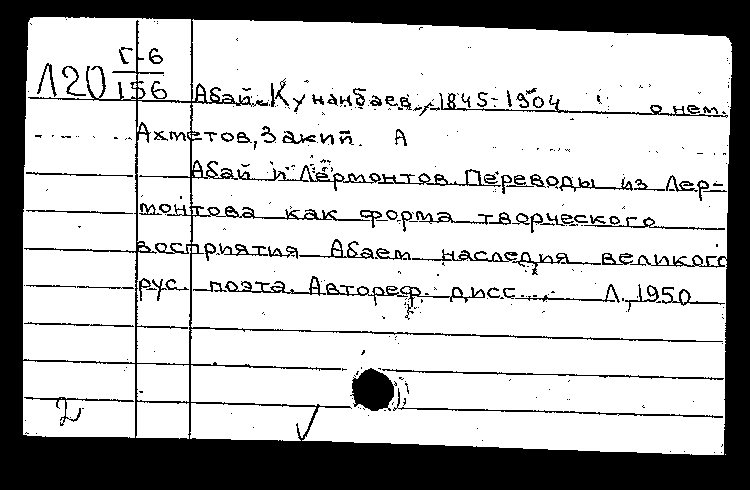 Г-6
Л20 156 Абай Кунанбаев, 1845-1904 о нем.
Ахметов, Закий А
Абай и Лермонтов. Переводы из Лер-
монтова как форма творческого
восприятия Абаем наследия великого
рус. поэта. Автореф. дисс... Л., 1950
2